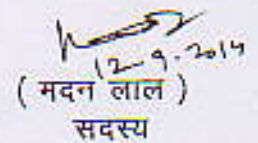 12-9-2014
( मदन लाल )
सदस्य